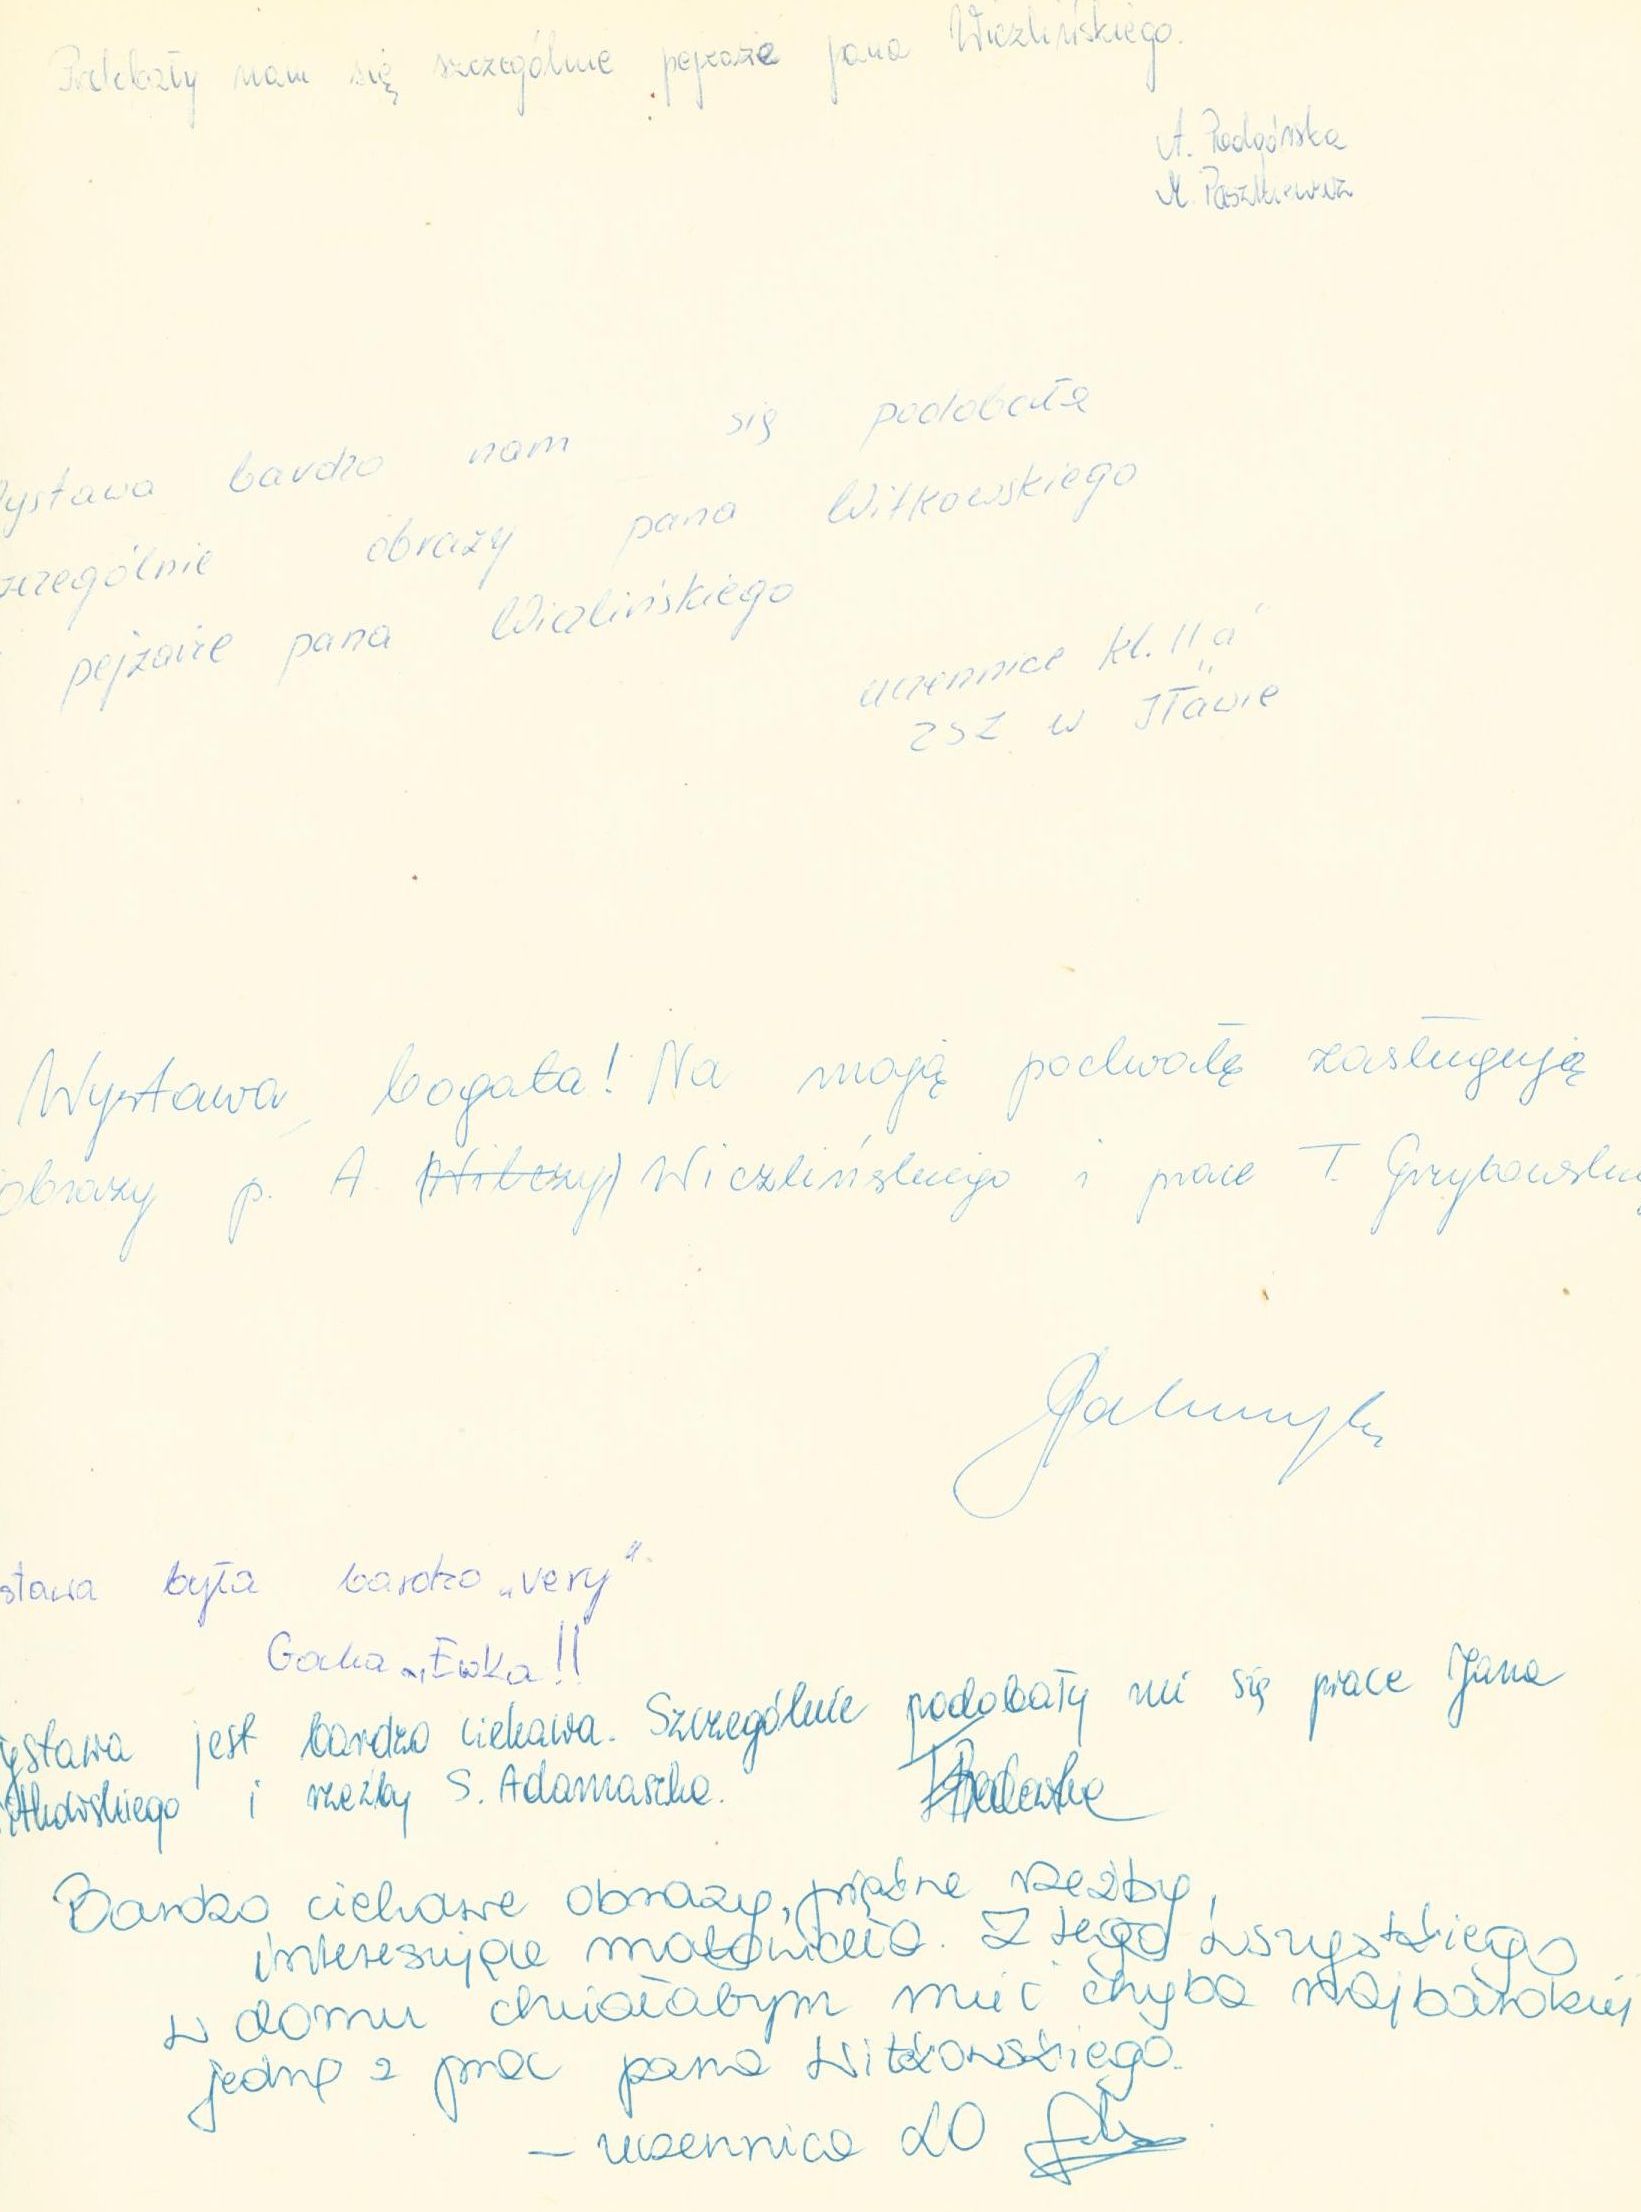 nam się szczególnie pejzaże pana Wiczlińskiego.
A. Podgórska
M. Paszkiewicz
ystawa bardzo nam się podobała
zczególnie obrazy pana Witkowskiego
pejzaże pana Wiczlińskiego
uczennice kl. II "a"
ZSZ w Iławie
Wystawa bogata! Na moją pochwałę zasługują
obrazy p. A. Wiczlińskiego i prace T. Grzybowskiej
stawa była bardzo „very"
Gocha „Ewka!!
ystawa jest bardzo ciekawa. Szczególnie podobały mi się prace Jana
itkowskiego i rzeźby S. Adamaszka.
Bardzo ciekawe obrazy, piękne rzeźby,
interesujące malowidła. Z tego wszystkiego
w domu chciałabym mieć chyba najbardziej
jedną z prac pana Witkowskiego.
– uczennica LO